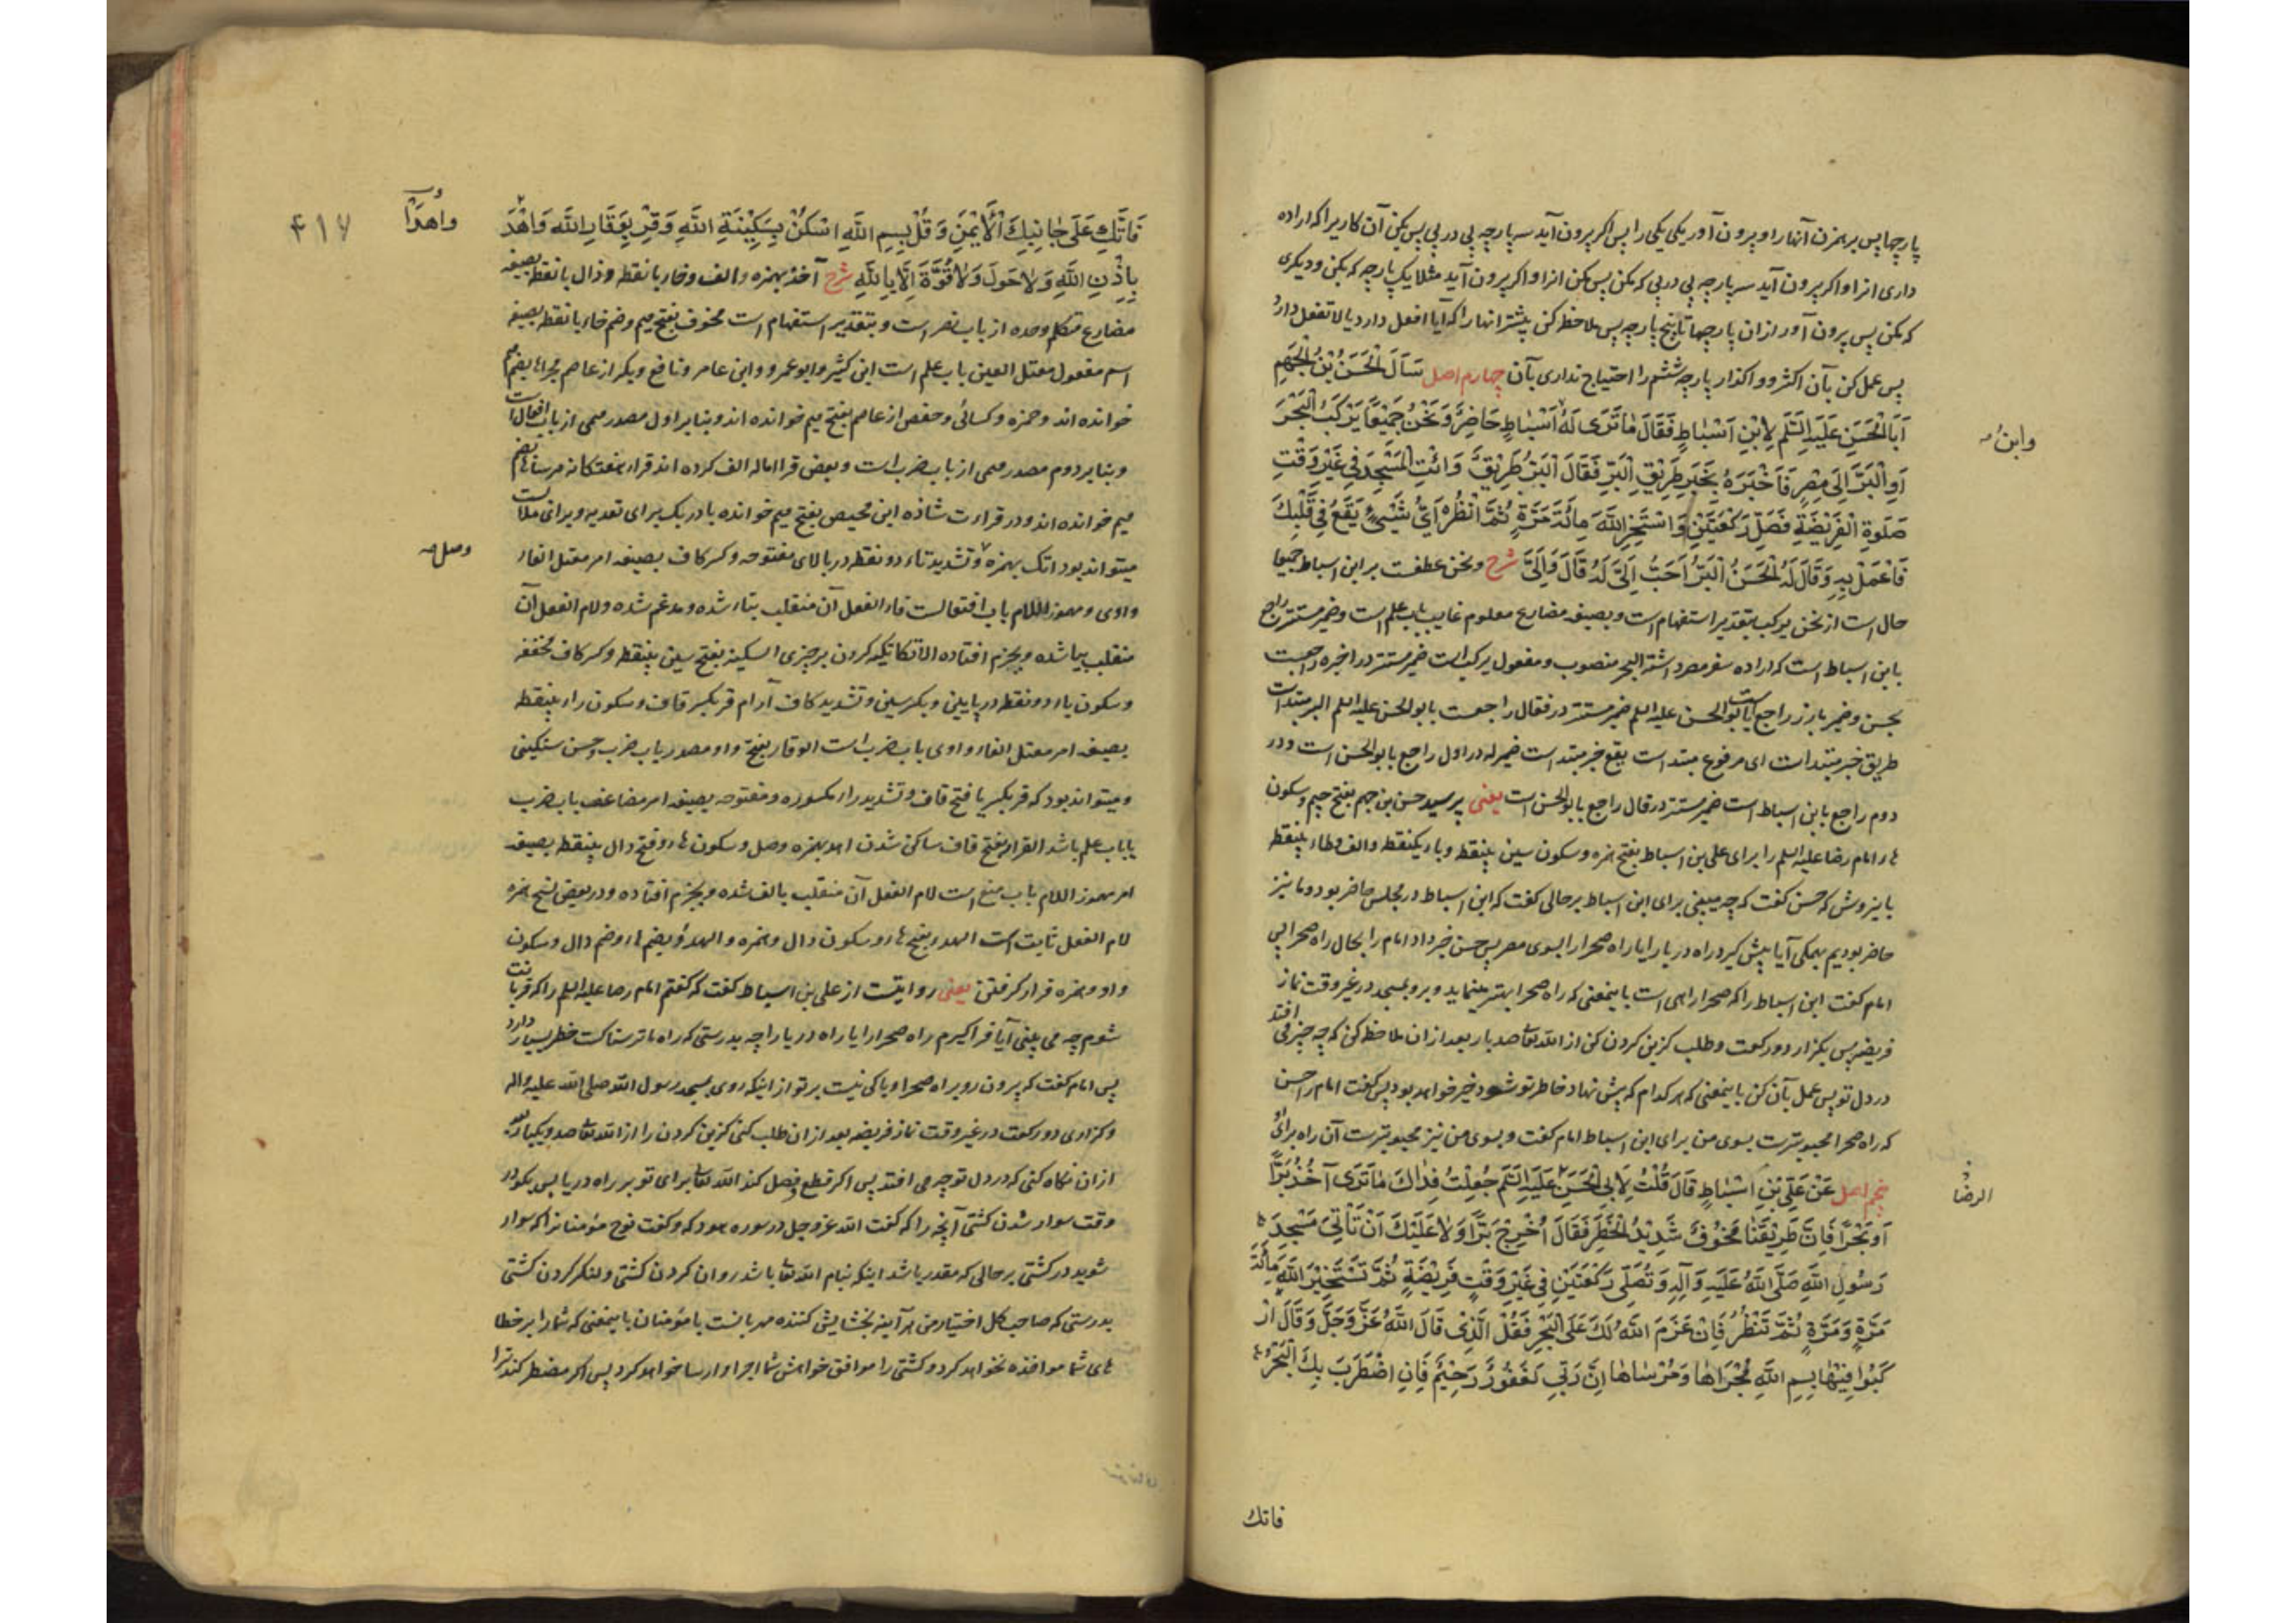 پارچها پس برهم زن آنها را و پرون آور یکی یکی را پس اکر پرون آید سه پارچه پی در پی پس بکن آن کاریرا که اراده
داری انرا و اکر پرون آید سه پارچه پی در پی که مکن پس مکن انرا و اکر پرون آید مثلا یک پارچه که بکن و دیکری
که مکن پس پرون آور از ان پارچها تا پنج پارچه پس ملاحظه کن پیشتر انها را که آیا افعل دارد یا لا تفعل دارد
پس عمل کن بآن اکثر و واکذار پارچه ششم را احتیاج نداری بآن چهارم اصل سَأَلَ الْحَسَنُ بْنُ الْجَهْمِ
أَبَا الْحَسَنِ عَلَيْهِ السَّلَم لِابْنِ اَسْبٰاطٍ فَقَالَ مٰا تَرَى لَهُ اَسْبٰاطٍ حَاضِرٌ وَنَحْنُ جَمِيْعًا يَرْكَبُ الْبَحْرَ
وابنُ
اَوِ الْبَرَّ اِلَى مِصْرٍ فَاَخْبَرَهُ بِخَبَرِ طَرِيْقِ الْبَرِّ فَقَالَ الْبَرُّ طَرِيْقٌ وَائْتِ الْمَسْجِدَ فِي غَيْرِ وَقْتِ
صَلٰوةِ الْفَرِيْضَةِ فَصَلِّ رَكْعَتَيْنِ وَاسْتَخِرِ اللّٰهَ مِائَةَ مَرَّةٍ ثُمَّ انْظُرْ اَيُّ شَيْءٍ يَقَعُ فِي قَلْبِكَ
فَاعْمَلْ بِهِ وَقَالَ لَهُ الْحَسَنُ الْبَرُّ اَحَبُّ اِلَيَّ لَهُ قَالَ وَاِلَيَّ شرح ونحن عطفست بر ابن اسباط جمیعا
حال است از نحن یرکب بتقدیر استفهام است و بصیغه مضارع معلوم غایب باب علم است و ضمیر مستتر راجع
بابن اسباط است که اراده سفر مصر داشته البحر منصوب و مفعول یرکب است ضمیر مستتر در اخبره راجعست
بحسن و ضمیر بارز راجع بابوالحسن علیه السلم ضمیر مستتر در فقال راجعست بابوالحسن علیه السلم البر مبتداست
طریق خبر مبتداست ای مرفوع مبتداست یقع خبر مبتداست ضمیر له در اول راجع بابوالحسن است و در
دوم راجع بابن اسباط است ضمیر مستتر در قال راجع بابوالحسن است یعنی پرسید حسن بن جهم بفتح جیم و سکون
هاء امام رضا علیه السلم را برای علی بن اسباط بفتح همزه و سکون سین بینقطه و باء یکنقطه و الف و طاء بینقطه
باینروش که حسن کفت که چه میبینی برای ابن اسباط بر حالی کفت که ابن اسباط در مجلس حاضر بود و ما نیز
حاضر بودیم همکی آیا پیش کیرد راه دریا را یا راه صحرا را بسوی مصر پس حسن خبر داد امام را بحال راه صحرا پس
امام کفت ابن اسباط را که صحرا راهی است باینمعنی که راه صحرا بهتر مینماید و برو بمسجد در غیر وقت نماز
فریضه پس بکزار دو رکعت و طلب کزین کردن کن از الله تعا صد بار بعد از ان ملاحظه کن که چه چیز می افتد
در دل تو پس عمل بآن کن باینمعنی که هر کدام که پیش نهاد خاطر تو شود خیر خواهد بود پس کفت امام را حسن
که راه صحرا محبوبترست بسوی من برای ابن اسباط امام کفت و بسوی من نیز محبوبترست آن راه برای او
پنجم اصل عَنْ عَلِيِّ بْنِ اَسْبٰاطٍ قَالَ قُلْتُ لِاَبِي الْحَسَنِ عَلَيْهِ السَّلَم جُعِلْتُ فِدٰاكَ مٰا تَرَى آخُذُ بَرًّا
الرضا
اَوْ بَحْرًا فَاِنَّ طَرِيْقَنَا مَخُوْفٌ شَدِيْدُ الْخَطَرِ فَقَالَ اُخْرُجْ بَرًّا وَلٰا عَلَيْكَ اَنْ تَأْتِيَ مَسْجِدَ
رَسُوْلِ اللّٰهِ صَلَّى اللّٰهُ عَلَيْهِ وَآلِهِ وَتُصَلِّي رَكْعَتَيْنِ فِي غَيْرِ وَقْتِ فَرِيْضَةٍ ثُمَّ تَسْتَخِيْرَ اللّٰهَ مِائَةَ
مَرَّةٍ وَمَرَّةٍ ثُمَّ تَنْظُرُ فَاِنْ عَزَمَ اللّٰهُ لَكَ عَلَى الْبَحْرِ فَقُلْ الَّذِي قَالَ اللّٰهُ عَزَّ وَجَلَّ وَقَالَ ارْ
كَبُوا فِيْهٰا بِسْمِ اللّٰهِ مَجْرَاهٰا وَمُرْسٰاهٰا اِنَّ رَبِّي لَغَفُوْرٌ رَحِيْمٌ فَاِنِ اضْطَرَبَ بِكَ الْبَحْرُ
فاتك
فَاتَّكِ عَلَى جٰانِبِكَ الْاَيْمَنِ وَقُلْ بِسْمِ اللّٰهِ اسْكُنْ بِسَكِيْنَةِ اللّٰهِ وَقِرْ بِوَقَارِ اللّٰهِ وَاهْدَ
واهدأ
۴۱۷
بِاِذْنِ اللّٰهِ وَلٰا حَوْلَ وَلٰا قُوَّةَ اِلَّا بِاللّٰهِ شرح آخذ بهمزه و الف و خاء بانقطه و ذال بانقطه بصیغه
مضارع متکلم وحده از باب نصر است و بتقدیر استفهام است مخوف بفتح میم و ضم خاء بانقطه بصیغه
اسم مفعول معتل العین باب علم است ابن کثیر و ابو عمرو و ابن عامر و نافع و بکر از عاصم مجراها بضم میم
خوانده اند و حمزه و کسائی و حفص از عاصم بفتح میم خوانده اند و بنابر اول مصدر میمی از باب افعال است
و بنابر دوم مصدر میمی از باب ضرب است و بعض قرا اماله الف کرده اند قراء هفتکانه مرساها بضم
میم خوانده اند و در قراءت شاذه ابن محیص بفتح میم خوانده با در بک برای تعدیه و برای ملابست
میتواند بود اتک بهمزه و تشدید تاء دو نقطه در بالای مفتوحه و کسر کاف بصیغه امر معتل الفاء
وصل
واوی و مهموز اللام باب افتعالست فاء الفعل آن منقلب بتاء شده و مدغم شده و لام الفعل آن
منقلب بیا شده و بجزم افتاده الاتکا تکیه کردن بر چیزی السکینه بفتح سین بینقطه و کسر کاف مخففه
و سکون یاء دو نقطه در پایین و بکسر سین و تشدید کاف آرام قر بکسر قاف و سکون راء بینقطه
بصیغه امر معتل الفاء واوی باب ضرب است الوقار بفتح واو مصدر باب ضرب و حسن سنکینی
و میتواند بود که قر بکسر یا فتح قاف و تشدید راء مکسوره و مفتوحه بصیغه امر مضاعف باب ضرب
یا باب علم باشد القرار بفتح قاف ساکن شدن اهد بهمزه وصل و سکون هاء و فتح دال بینقطه بصیغه
امر مهموز اللام باب منع است لام الفعل آن منقلب بالف شده و بجزم افتاده و در بعض نسخ همزه
لام الفعل ثابت است الهدء بفتح هاء و سکون دال و همزه و الهدؤ بضم هاء و ضم دال و سکون
واو و همزه قرار کرفتن یعنی روایتست از علی بن اسباط کفت که کفتم امام رضا علیه السلم را که قربانت
شوم چه می بینی آیا فرا کیرم راه صحرا را یا راه دریا را چه بدرستی که راه ما ترسناکست خطر بسیار دارد
پس امام کفت که پرون رو براه صحرا و باکی نیست بر تو از اینکه روی بمسجد رسول الله صلی الله علیه و اله
و کزاری دو رکعت در غیر وقت نماز فریضه بعد از ان طلب کنی کزین کردن را از الله تعا صد و یکبار پس
از ان نکاه کنی که در دل تو چه می افتد پس اکر قطع و فصل کند الله تعا برای تو بر راه دریا پس بکو در
وقت سوار شدن کشتی آنچه را که کفت الله عز و جل در سوره هود که و کفت نوح مؤمنانرا که سوار
شوید در کشتی بر حالی که مقدر باشد اینکه بنام الله تعا باشد روان کردن کشتی و لنکر کردن کشتی
بدرستی که صاحب کل اختیار من هر آینه بخشایش کننده مهربانست با مؤمنان باینمعنی که شما را بر خطا
های شما مواخذه نخواهد کرد و کشتی را موافق خواهش شما اجرا و ارسا خواهد کرد پس اکر مضطر کند ترا